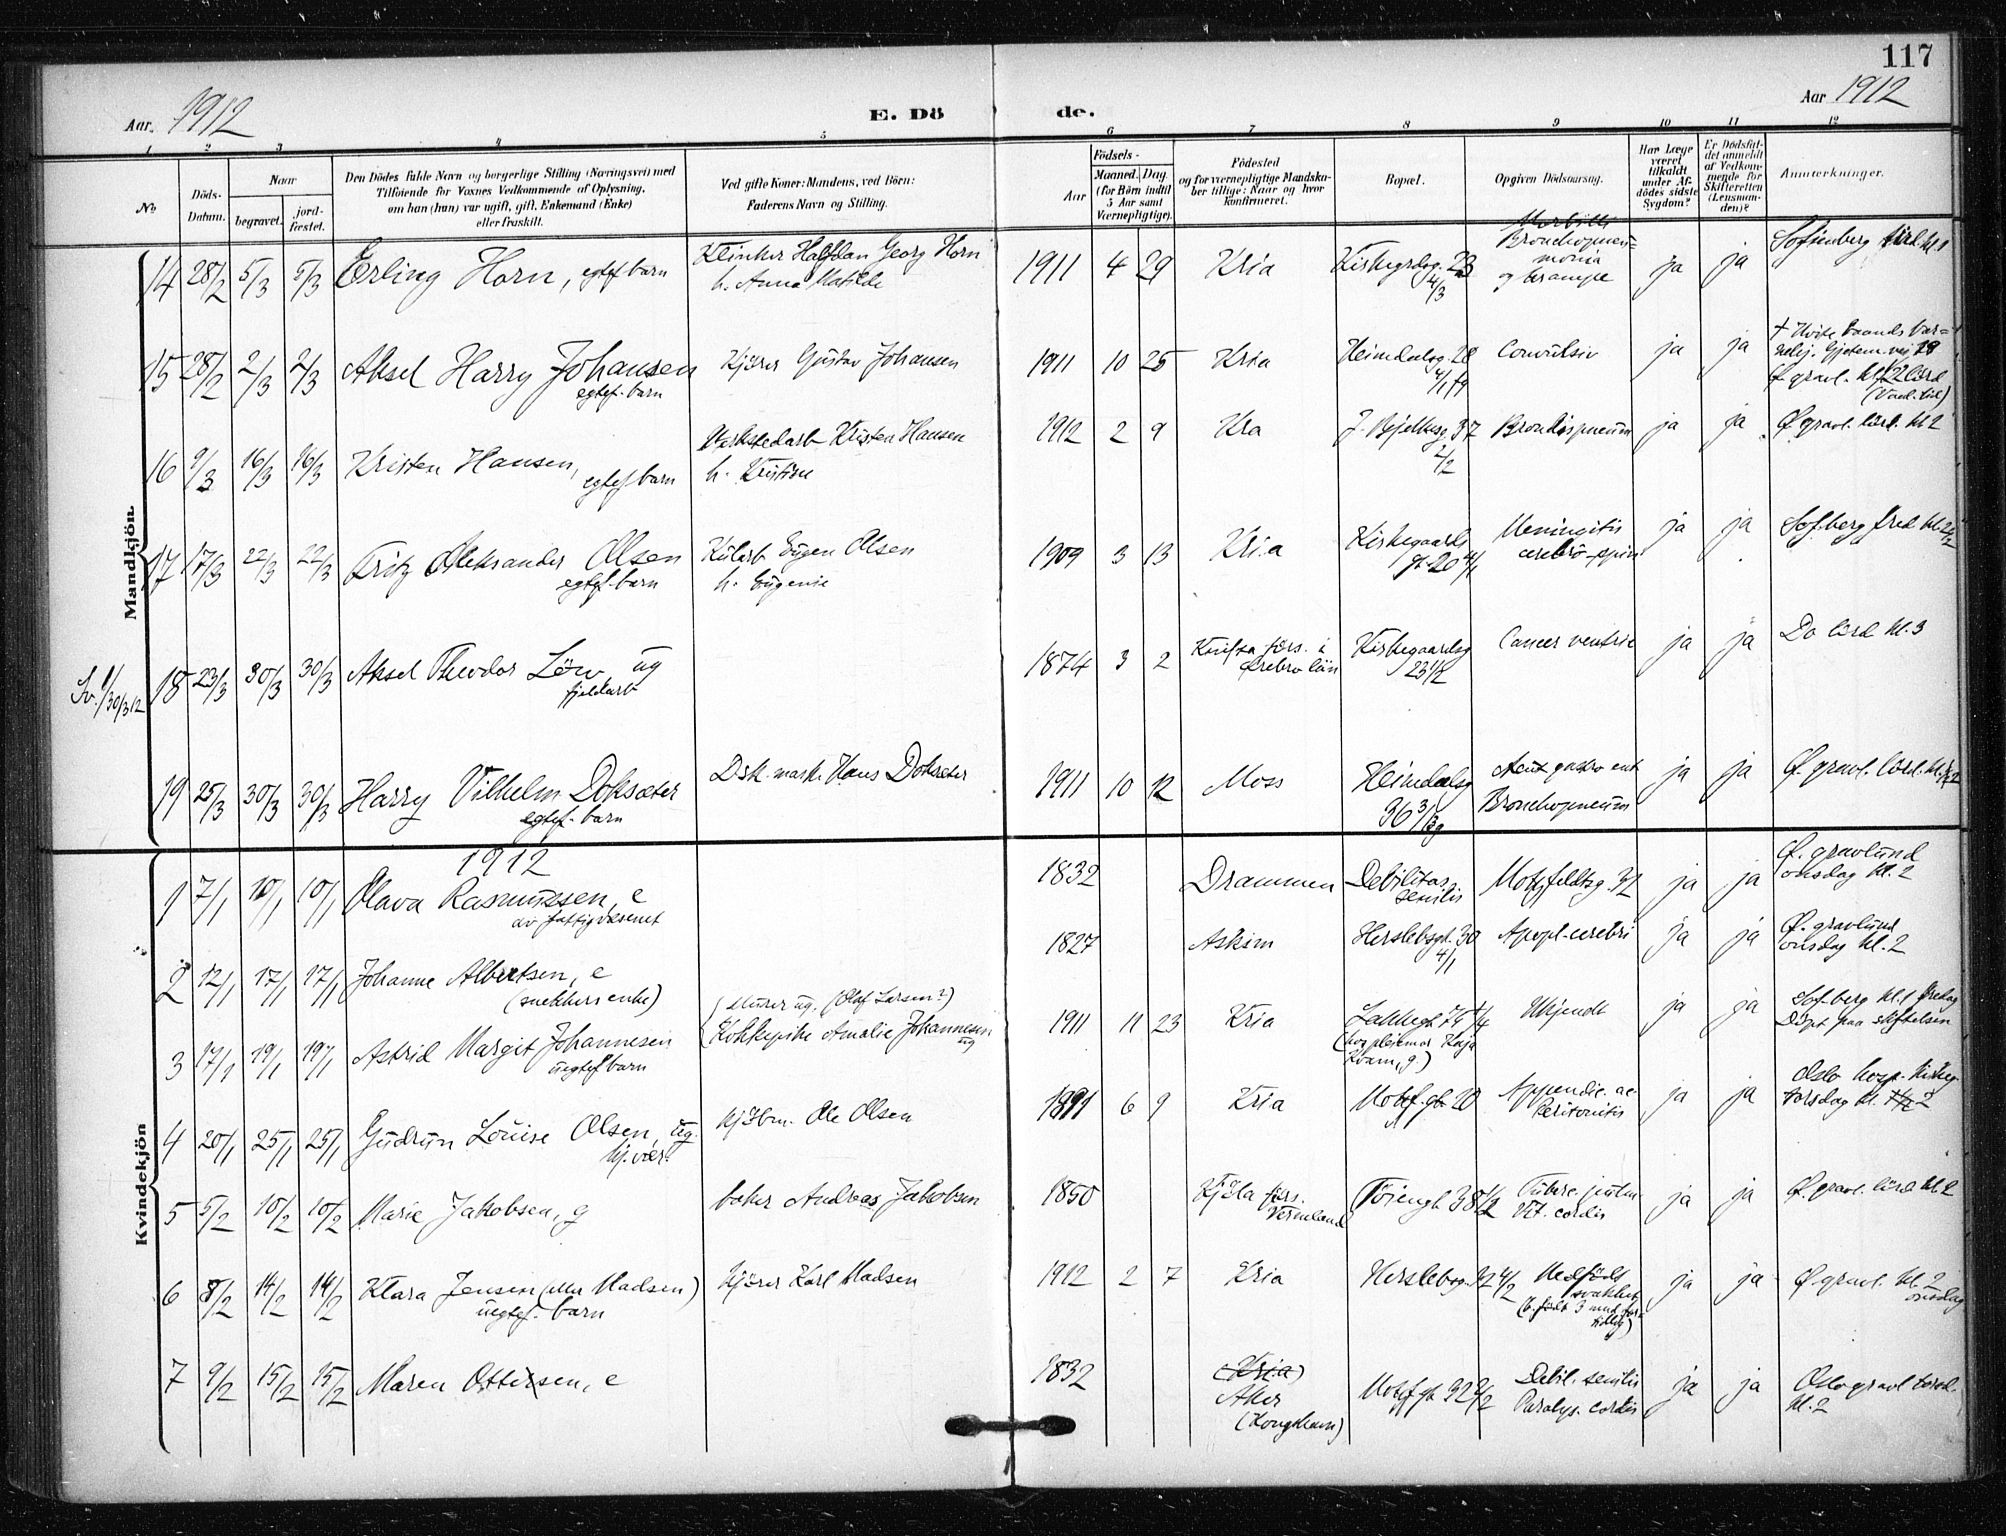 117
Aar. 1912
E. Dö de.
Aar 1912
1 2 3 4 5 6 7 8 9 10 11 12
No
Döds-Datum.
Naar
begravet.
jord-fæstet.
Den Dödes fulde Navn og borgerlige Stilling (Næringsvei) med
Tilföiende for Voxnes Vedkommende af Oplysning,
om han (hun) var ugift, gift, Enkemand (Enke)
eller fraskilt.
Ved gifte Koner: Mandens, ved Börn:
Faderens Navn og Stilling.
Födsels-
Aar
Maaned. Dag
(for Börn indtil
5 Aar samt
Værnepligtige).
Födested
og for værnepligtige Mandska-
ber tillige: Naar og hvor
konfirmeret.
Bopæl.
Opgiven Dödsaarsag.
Har Læge
været
tilkaldt
under Af-
dödes sidste
Sygdom?
Er Dödsfal-
det anmeldt
af Vedkom-
mende for
Skifteretten
(Lensman-
den)?
Anmerkninger.
Mandkjön.
14 28/2 5/3 5/3 Erling Horn, egtef barn Halfdan Georg Horn
h. Anna Matilde
1911 4 29 Kria 23
4/3
Bronchopneu-
monia
og krampe
ja ja Sofienberg
15 28/2 2/3 2/3 Aksel Harry Johansen
egtef. barn
Kjörer Gustav Johansen
1911 10 25 Kria Heimdalsg. 28 Convulsiv ja ja
16 9/3 16/3 16/3 Kristen Hansen,
egtef barn
Verkstedarb Kristen Hansen
h. Kristine
1912 2 9 Kra 37
2/2
ja ja Ø gravl. lörd. kl 2
17 17/3 22/3 22/3 Fritz Aleksander Olsen
egtef. barn
Eugen Olsen
h. Eugenie
1909 3 13 Kria Kirkegaards
gt. 20 4/1
Meningitis
cerebro-spin
ja ja
18 23/3 30/3 30/3 Aksel Theodor Löw ug
fjeldarb
1874 3 2
Örebro län
Kirkegaardsg
23 1/2
Cancer ventric ja ja Do lörd kl. 3
19 25/3 30/3 30/3 Harry Vilhelm Doksæter
egtef. barn
Hans Doksæter
1911 10 12 Moss Heimdalsg
36
Acut gastro ent
Bronchopneum
ja ja Ø. gravl. lörd. kl.
Kvindekjön
1912
1 7/1 10/1 10/1 Olava Rasmussen, e
av fattigvæsenet
1832 Drammen Debilitas
senilis
Motzfeldtsg. ja ja Ø. gravlund
onsdag kl. 2
2 12/1 17/1 17/1 Johanne Albertsen, e
(snekkers enke)
1827 Askim Herslebsgt. 30
4/1
Apopl. cerebri ja ja Ø. gravlund
onsdag kl. 2
3 17/1 19/1 19/1 Astrid Margit Johannesen
uegtef barn
(Murer ug. (Olaf Larsen?)
Kokkepike Amalie Johannesen
ug
1911 11 23 Kria
(hos pleiemor Kaja
Kvam, g.)
Ukjendt ja ja Sof.berg kl. 1 fredag
Döpt paa stiftelsen
4 20/1 25/1 25/1 Gudrun Louise Olsen, ug.
hj. vær.
Ole Olsen
1891 6 9 Kria Motzf. gt. 20 Appendic. ac
Peritonitis
ja ja Oslo hosp.
torsdag kl. 2
5 5/2 10/2 10/2 Marie Jakobsen, g baker Andreas Jakobsen
1850
Vermland
Töiengt 38 Tuberc. pulm
Vit. cordis
ja ja Ø. gravl. lörd kl. 2
6 8/2 14/2 14/2 Klara Jensen (eller Madsen)
uegtef. barn
Kjörer Karl Madsen
1912 2 7 Kria Herslebsg. Medfödt
svakhet
(b. födt 3 mnd for
tidlig)
ja ja Ø gravl. kl. 2
onsdag
7 9/2 15/2 15/2 Maren Ottersen, e
1832 (Kria)
Aker
Motzf gt 32 2/2 Debil. senilis
Paralys. cordis
ja ja Oslo gravl torsd.
kl. 2